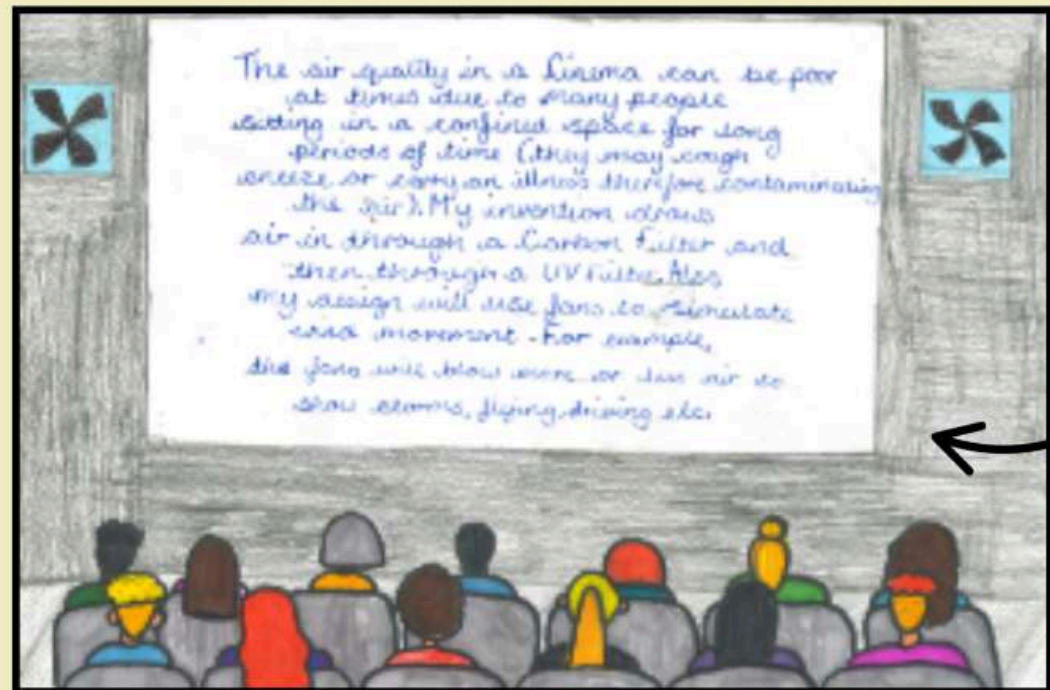 The air quality in a Cinema can be poor
at times due to many people
sitting in a confined space for long
periods of time (they may cough
sneeze or carry an illness therefore contaminating
the air). My invention draws
air in through a Carbon Filter and
then through a UV Filter. Also
my design will use fans to simulate
movement. For example,
the fans will blow more or less air to
show storms, flying, driving etc.